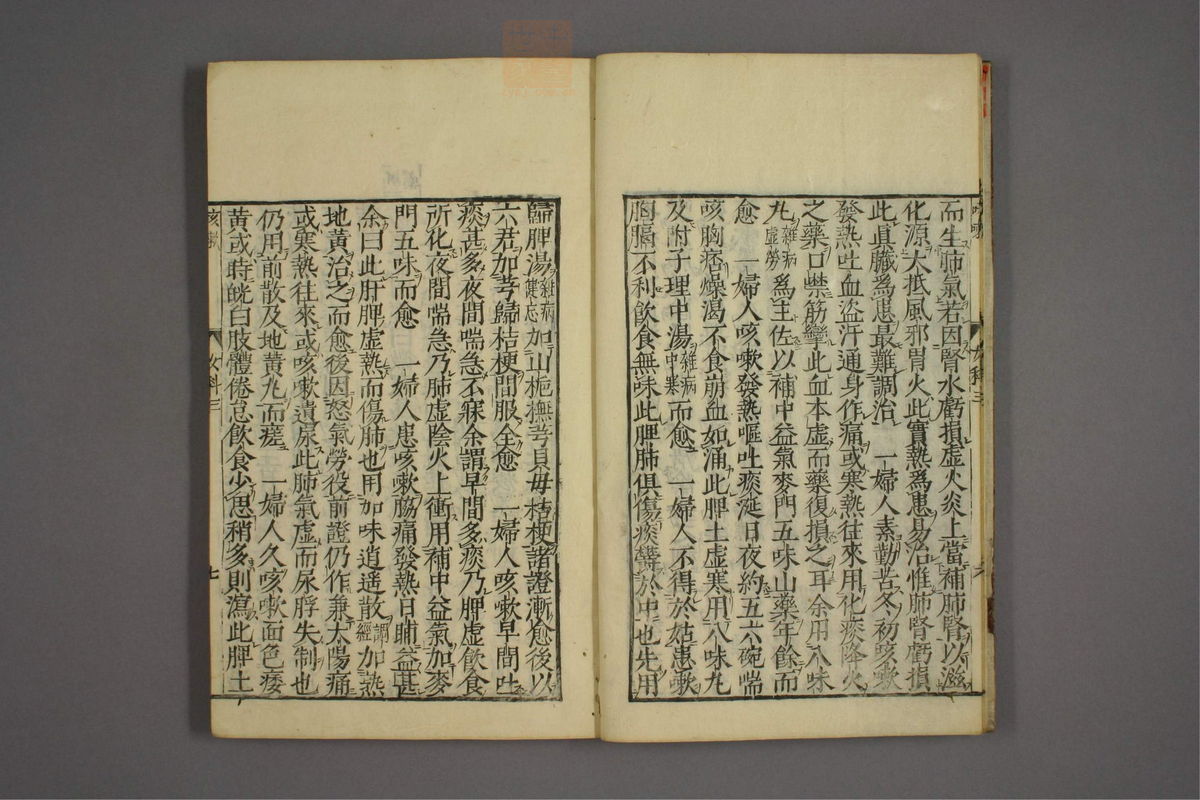 而生肺氣若因腎水虧損虛火炎上當補肺腎以滋
化源大抵風邪胃火此實熱爲患易治惟肺腎虧損
此眞臟爲患最難調治 一婦人素勤苦冬初咳嗽
發熱吐血盜汗通身作痛或寒熱往來用化痰降火
之藥口噤筋攣此血本虛而藥復損之耳余用八味
丸雜病虛勞爲主佐以補中益氣麥門五味山藥年餘而
愈 一婦人咳嗽發熱嘔吐痰涎日夜約五六碗喘
咳胸痞燥渴不食崩血如涌此脾土虛寒用八味丸
及附子理中湯雜病中寒而愈 一婦人不得於姑患嗽
胸膈不利飲食無味此脾肺俱傷痰鬱於中也先用
女科三
歸脾湯雜病健忘加山梔撫芎貝毋桔梗諸證漸愈後以
六君加芎歸桔梗間服全愈 一婦人咳嗽早間吐
痰甚多夜間喘急不寐余謂早間多痰乃脾虛飲食
所化夜間喘急乃肺虛陰火上衝用補中益氣加麥
門五味而愈 一婦人患咳嗽脇痛發熱日晡益甚
余曰此肝脾虛熱而傷肺也用加味逍遙散調經加熟
地黃治之而愈後因怒氣勞役前證仍作兼太陽痛
或寒熱往來或咳嗽遺尿此肺氣虛而尿脬失制也
仍用前散及地黃丸而瘥 一婦人久咳嗽面色痿
黃或時㿠白肢體倦怠飲食少思稍多則瀉此脾土
咳嗽
女科三
七